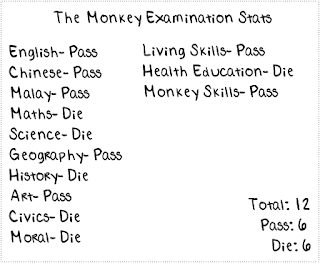 The Monkey Examination Stats
English- Pass
Chinese- Pass
Malay- Pass
Maths- Die
Science- Die
Geography- Pass
History- Die
Art- Pass
Civics- Die
Moral- Die
Living Skills- Pass
Health Education- Die
Monkey Skills- Pass
Total: 12
Pass: 6
Die: 6